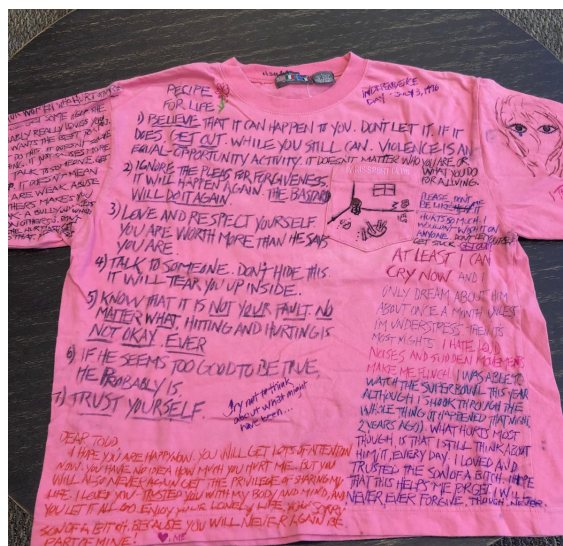 RECIPE
FOR LIFE
INDEPENDENCE
DAY - JULY 3, 1996
1) BELIEVE THAT IT CAN HAPPEN TO YOU. DON'T LET IT. IF IT
DOES, GET OUT. WHILE YOU STILL CAN. VIOLENCE IS AN
EQUAL-OPPORTUNITY ACTIVITY. IT DOESN'T MATTER WHO YOU ARE, OR
WHAT YOU DO
FOR A LIVING.
2) IGNORE THE PLEAS FOR FORGIVENESS.
IT WILL HAPPEN AGAIN. THE BASTARD
WILL DO IT AGAIN.
3) LOVE AND RESPECT YOURSELF.
YOU ARE WORTH MORE THAN HE SAYS
YOU ARE.
4) TALK TO SOMEONE. DON'T HIDE THIS.
IT WILL TEAR YOU UP INSIDE.
5) KNOW THAT IT IS NOT YOUR FAULT. NO
MATTER WHAT, HITTING AND HURTING IS
NOT OKAY. EVER
6) IF HE SEEMS TOO GOOD TO BE TRUE,
HE PROBABLY IS.
7) TRUST YOURSELF.
Try not to think
about what might
have been...
PLEASE DON'T
BE LIKE ME. IT
HURTS SO MUCH. I
WOULDN'T WISH IT ON
ANYONE. DON'T LET YOURSELF
GET SUCK
AT LEAST I CAN
CRY NOW AND I
ONLY DREAM ABOUT HIM
ABOUT ONCE A MONTH UNLESS
I'M UNDER STRESS THEN ITS
MOST NIGHTS. I HATE LOUD
NOISES AND SUDDEN MOVEMENTS
MAKE ME FLINCH. I WAS ABLE TO
WATCH THE SUPERBOWL THIS YEAR
ALTHOUGH I SHOOK THROUGH THE
WHOLE THING (IT HAPPENED THAT NIGHT,
2 YEARS AGO). WHAT HURTS MOST
THOUGH, IS THAT I STILL THINK ABOUT
HIM/IT, EVERY DAY. I LOVED AND
TRUSTED THE SON OF A BITCH. I HOPE
THAT THIS HELPS ME FORGET. I WILL
NEVER EVER FORGIVE, THOUGH. NEVER.
DEAR TODD
I HOPE YOU ARE HAPPY NOW. YOU WILL GET LOTS OF ATTENTION
NOW. YOU HAVE NO IDEA HOW MUCH YOU HURT ME. BUT YOU
WILL ALSO NEVER AGAIN GET THE PRIVILEGE OF SHARING MY
LIFE. I LOVED YOU - TRUSTED YOU WITH MY BODY AND MIND, AND
YOU LET IT ALL GO. ENJOY YOUR LONELY LIFE, YOU SORRY
SON OF A BITCH. BECAUSE YOU WILL NEVER AGAIN BE
PART OF MINE! ME